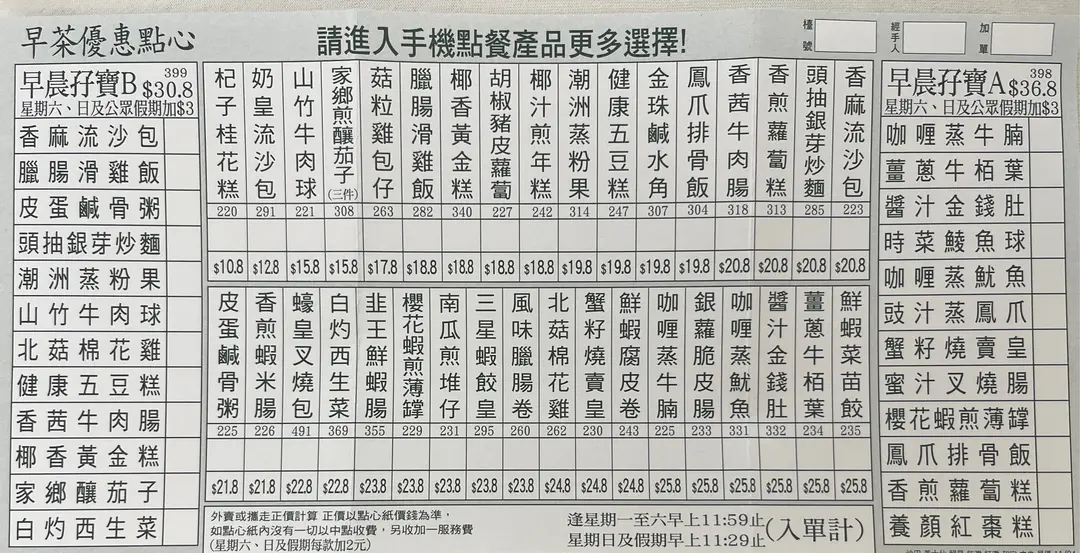 早茶優惠點心
請進入手機點餐產品更多選擇!
檯號
經手人
加單
早晨孖寶B 399 $30.8
星期六、日及公眾假期加$3
香麻流沙包
臘腸滑雞飯
皮蛋鹹骨粥
頭抽銀芽炒麵
潮洲蒸粉果
山竹牛肉球
北菇棉花雞
健康五豆糕
香茜牛肉腸
椰香黃金糕
家鄉釀茄子
白灼西生菜
杞子桂花糕 220 $10.8
奶皇流沙包 291 $12.8
山竹牛肉球 221 $15.8
家鄉煎釀茄子(三件) 308 $15.8
菇粒雞包仔 263 $17.8
臘腸滑雞飯 282 $18.8
椰香黃金糕 340 $18.8
胡椒豬皮蘿蔔 227 $18.8
椰汁煎年糕 242 $18.8
潮洲蒸粉果 314 $19.8
健康五豆糕 247 $19.8
金珠鹹水角 307 $19.8
鳳爪排骨飯 304 $19.8
香茜牛肉腸 318 $20.8
香煎蘿蔔糕 313 $20.8
頭抽銀芽炒麵 285 $20.8
香麻流沙包 223 $20.8
皮蛋鹹骨粥 225 $21.8
香煎蝦米腸 226 $21.8
蠔皇叉燒包 491 $22.8
白灼西生菜 369 $22.8
韭王鮮蝦腸 355 $23.8
櫻花蝦煎薄罉 229 $23.8
南瓜煎堆仔 231 $23.8
三星蝦餃皇 295 $23.8
風味臘腸卷 260 $23.8
北菇棉花雞 262 $24.8
蟹籽燒賣皇 230 $24.8
鮮蝦腐皮卷 243 $24.8
咖喱蒸牛腩 225 $25.8
銀蘿脆皮腸 233 $25.8
咖喱蒸魷魚 331 $25.8
醬汁金錢肚 332 $25.8
薑蔥牛栢葉 234 $25.8
鮮蝦菜苗餃 235 $25.8
外賣或攜走正價計算 正價以點心紙價錢為準,
如點心紙內沒有一切以中點收費，另收加一服務費
(星期六、日及假期每款加2元)
逢星期一至六早上11:59止
星期日及假期早上11:29止
(入單計)
早晨孖寶A 398 $36.8
星期六、日及公眾假期加$3
咖喱蒸牛腩
薑蔥牛栢葉
醬汁金錢肚
時菜鯪魚球
咖喱蒸魷魚
豉汁蒸鳳爪
蟹籽燒賣皇
蜜汁叉燒腸
櫻花蝦煎薄罉
鳳爪排骨飯
香煎蘿蔔糕
養顏紅棗糕